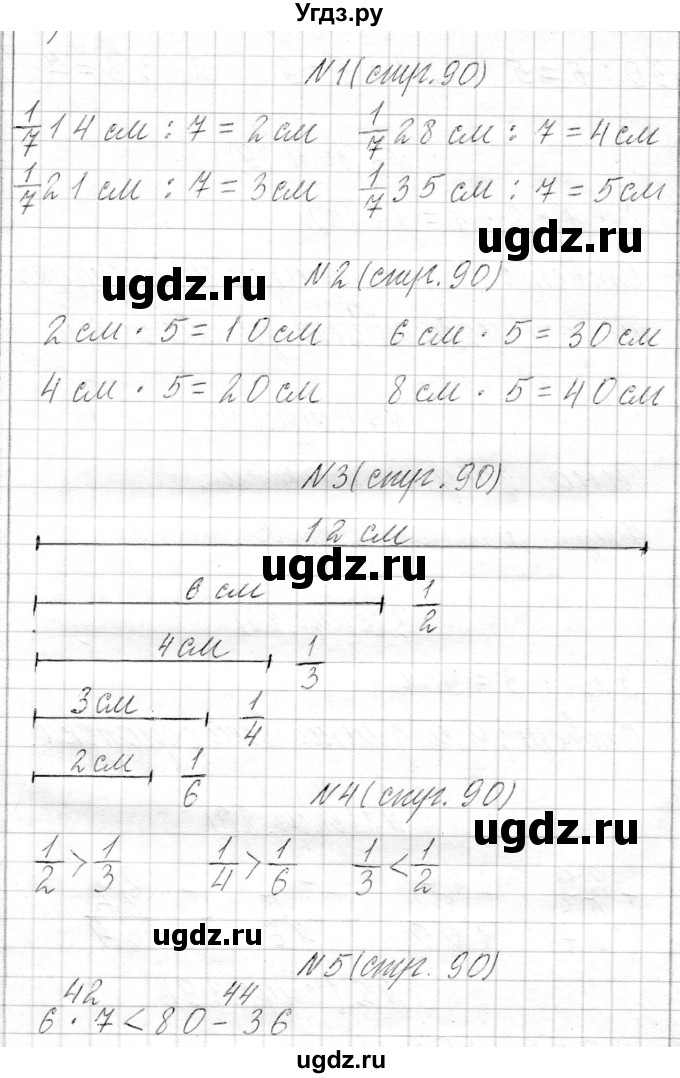 Угдз.ру
№1(стр.90)
1/7 14 см : 7 = 2 см 1/7 28 см : 7 = 4 см
1/7 21 см : 7 = 3 см 1/7 35 см : 7 = 5 см
ugdz.ru
ugdz.ru
№2(стр.90)
2 см · 5 = 10 см 6 см · 5 = 30 см
4 см · 5 = 20 см 8 см · 5 = 40 см
№3(стр.90)
12 см
ugdz.ru
6 см 1/2
4 см 1/3
3 см 1/4
2 см 1/6
№4(стр.90)
ugdz.ru
1/2 > 1/3 1/4 > 1/6 1/3 < 1/2
ugdz.ru
№5(стр.90)
42 44
6 · 7 < 80 - 36
ugdz.ru